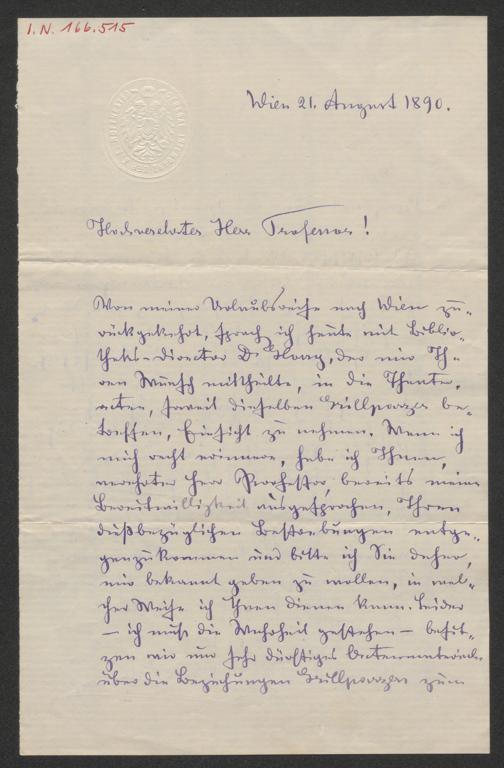 I.N. 166.515
Wien 21. August 1890.
Hochverehrter Herr Professor!
Von meiner Urlaubsreise nach Wien zu-
rückgekehrt, sprach ich heute mit Biblio-
theks-Director Dr Glossy, der mir Ih-
ren Wunsch mittheilte, in die Theater-
acten, soweit dieselben Grillparzer be-
treffen, Einsicht zu nehmen. Wenn ich
mich recht erinnere, habe ich Ihnen,
verehrter Herr Professor, bereits meine
Bereitwilligkeit ausgesprochen, Ihren
dießbezüglichen Bestrebungen entge-
genzukommen und bitte ich Sie daher,
mir bekannt geben zu wollen, in wel-
cher Weise ich Ihnen dienen kann. Leider
— ich muß die Wahrheit gestehen — besit-
zen wir nur sehr dürftiges Actenmateriale
über die Beziehungen Grillparzers zum